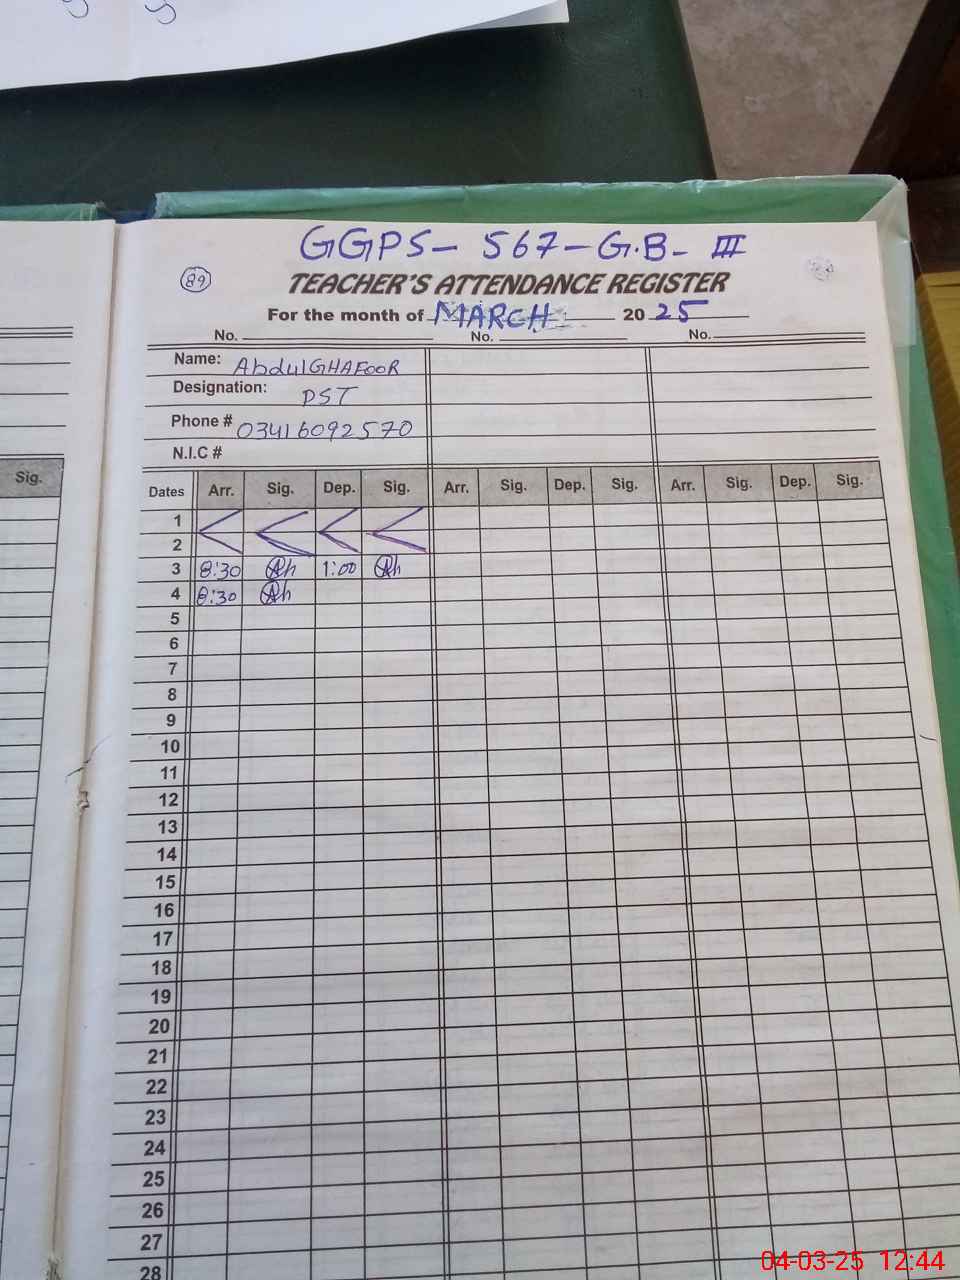 GGPS - 567 - G.B - III
89
TEACHER'S ATTENDANCE REGISTER
For the month of MARCH 20 25
No. No. No.
Name: Abdul GHAFOOR
Designation: PST
Phone # 03416092570
N.I.C #
Sig.
Dates Arr. Sig. Dep. Sig. Arr. Sig. Dep. Sig. Arr. Sig. Dep. Sig.
1
2
3 8:30 1:00
4 8:30
5
6
7
8
9
10
11
12
13
14
15
16
17
18
19
20
21
22
23
24
25
26
27
28
04-03-25 12:44